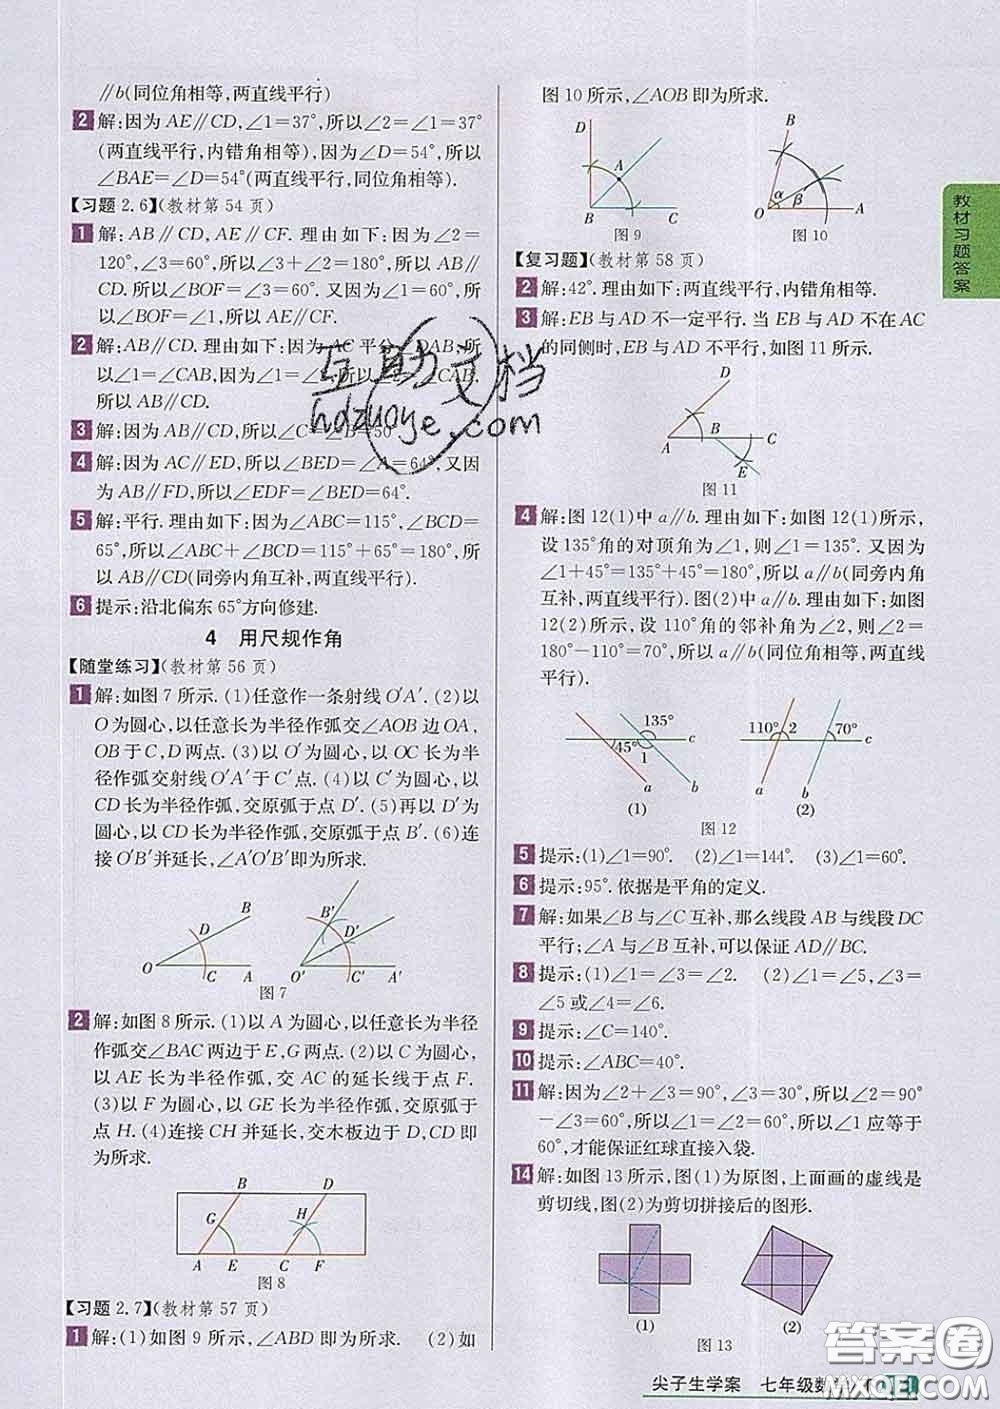 ∥b(同位角相等,两直线平行)
2 解:因为 AE∥CD,∠1=37°,所以∠2=∠1=37°
(两直线平行,内错角相等),因为∠D=54°,所以
∠BAE=∠D=54°(两直线平行,同位角相等).
【习题 2.6】(教材第 54 页)
1 解:AB∥CD,AE∥CF. 理由如下:因为∠2=
120°,∠3=60°,所以∠3+∠2=180°,所以 AB∥
CD. 所以∠BOF=∠3=60°. 又因为∠1=60°,所
以∠BOF=∠1,所以 AE∥CF.
2 解:AB∥CD. 理由如下:因为 AC 平分∠DAB,所
以∠1=∠CAB,因为∠1=∠2,所以∠2=∠CAB.
所以 AB∥CD.
3 解:因为 AB∥CD,所以∠C=∠B=50°
4 解:因为 AC∥ED,所以∠BED=∠A=64°,又因
为 AB∥FD,所以∠EDF=∠BED=64°.
5 解:平行. 理由如下:因为∠ABC=115°,∠BCD=
65°,所以∠ABC+∠BCD=115°+65°=180°,所
以 AB∥CD(同旁内角互补,两直线平行).
6 提示:沿北偏东 65°方向修建.
4 用尺规作角
【随堂练习】(教材第 56 页)
1 解:如图 7 所示. (1)任意作一条射线 O′A′. (2)以
O 为圆心,以任意长为半径作弧交∠AOB 边 OA,
OB 于 C,D 两点. (3)以 O′为圆心,以 OC 长为半
径作弧交射线 O′A′于 C′点. (4)以 C′为圆心,以
CD 长为半径作弧,交原弧于点 D′. (5)再以 D′为
圆心,以 CD 长为半径作弧,交原弧于点 B′. (6)连
接 O′B′并延长,∠A′O′B′即为所求.
B D O C A B′ D′ O′ C′ A′
图 7
2 解:如图 8 所示. (1)以 A 为圆心,以任意长为半径
作弧交∠BAC 两边于 E,G 两点. (2)以 C 为圆心,
以 AE 长为半径作弧,交 AC 的延长线于点 F.
(3)以 F 为圆心,以 GE 长为半径作弧,交原弧于
点 H. (4)连接 CH 并延长,交木板边于 D,CD 即
为所求.
B D G H A E C F
图 8
【习题 2.7】(教材第 57 页)
1 解:(1)如图 9 所示,∠ABD 即为所求. (2)如
图 10 所示,∠AOB 即为所求.
D A B C
图 9
B α β O A
图 10
【复习题】(教材第 58 页)
2 解:42°. 理由如下:两直线平行,内错角相等.
3 解:EB 与 AD 不一定平行. 当 EB 与 AD 不在 AC
的同侧时,EB 与 AD 不平行,如图 11 所示.
D A B C E
图 11
4 解:图 12(1)中 a∥b. 理由如下:如图 12(1)所示,
设 135°角的对顶角为∠1,则∠1=135°. 又因为
∠1+45°=135°+45°=180°,所以 a∥b(同旁内角
互补,两直线平行). 图(2)中 a∥b. 理由如下:如图
12(2)所示,设 110°角的邻补角为∠2,则∠2=
180°-110°=70°,所以 a∥b(同位角相等,两直线
平行).
135° 45° 1 c a b
(1)
110° 2 70° c a b
(2)
图 12
5 提示:(1)∠1=90°. (2)∠1=144°. (3)∠1=60°.
6 提示:95°. 依据是平角的定义.
7 解:如果∠B 与∠C 互补,那么线段 AB 与线段 DC
平行;∠A 与∠B 互补,可以保证 AD∥BC.
8 提示:(1)∠1=∠3=∠2. (2)∠1=∠5,∠3=
∠5 或∠4=∠6.
9 提示:∠C=140°.
10 提示:∠ABC=40°.
11 解:因为∠2+∠3=90°,∠3=30°,所以∠2=90°
-∠3=60°,所以∠1=∠2=60°,所以∠1 应等于
60°,才能保证红球直接入袋.
14 解:如图 13 所示,图(1)为原图,上面画的虚线是
剪切线,图(2)为剪切拼接后的图形.
(1) (2)
图 13
教材习题答案
尖子生学案 七年级数学
互助文档
hdzuoye.com
答案圈
MXQE.COM